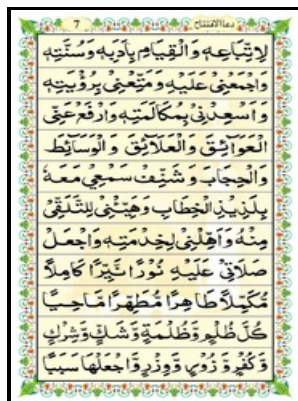 7 دعاالافتتاح
لِاتِّبَاعِهٖ وَالْقِيَامِ بِاٰدَبِهٖ وَسُنَّتِهٖ
وَاجْمَعْنِيْ عَلَيْهِ وَمَتِّعْنِيْ بِرُؤْيَتِهٖ
وَاَسْعِدْنِيْ بِمُكَالَمَتِهٖ وَارْفَعْ عَنِّي
الْعَوَآئِقَ وَالْعَلَآئِقَ وَالْوَسَآئِطَ
وَالْحِجَابَ وَشَنِّفْ سَمْعِيْ مَعَهٗ
بِلَذِيْذِ الْخِطَابِ وَهَيِّئْنِيْ لِلتَّلَقِّيْ
مِنْهُ وَاَهِّلْنِيْ لِخِدْمَتِهٖ وَاجْعَلْ
صَلَاتِيْ عَلَيْهِ نُوْرًا نَّيِّرًا كَامِلًا
مُّكَمَّلًا طَاهِرًا مُّطَهِّرًا مَّاحِيًا
كُلَّ ظُلْمٍ وَّظُلْمَةٍ وَّشَكٍّ وَّشِرْكٍ
وَّكُفْرٍ وَّزُوْرٍ وَّوِزْرٍ وَّاجْعَلْهَا سَبَبًا